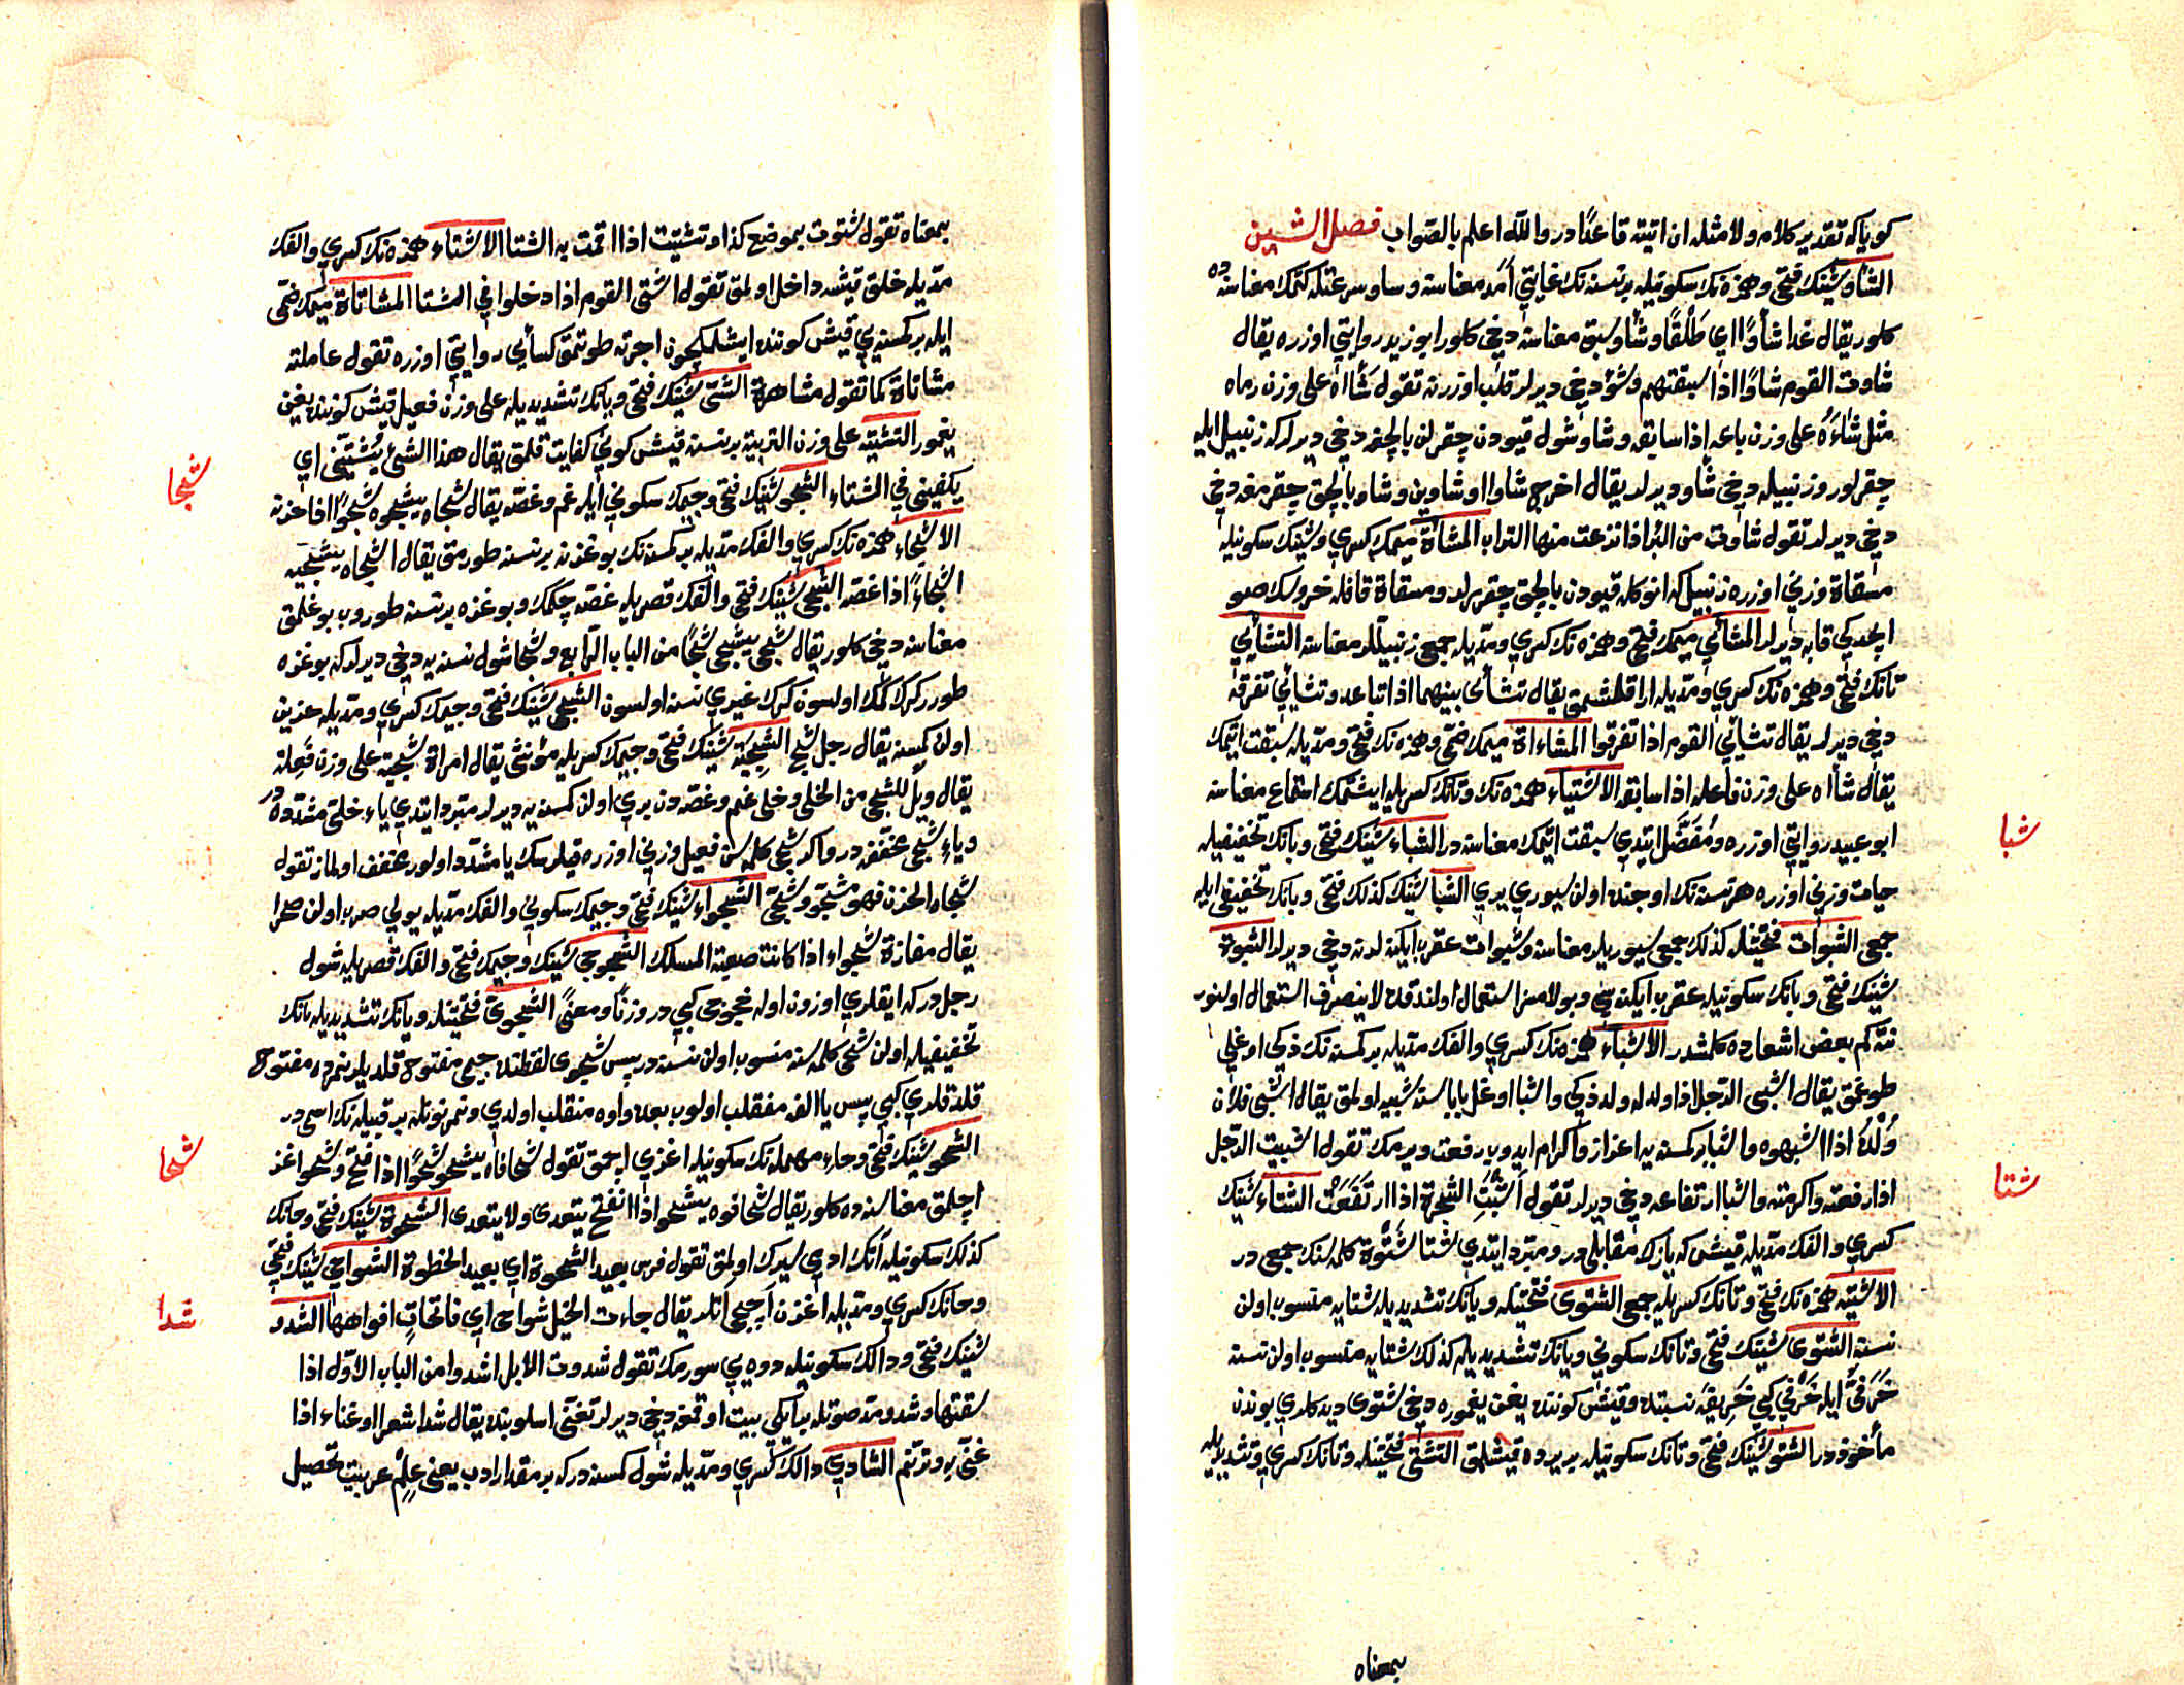 كوياكه تقدير كلام ولا مثله ان اتيته قاعدًا در والله اعلم بالصّواب فصل الشين
الشأو شينك فتحى وهمزه نك سكونيله برنسنه نك غايتى أمد معناسنه وساو سرعتله كتمك معناسنه ده
كلور يقال عدا شأوًا اى طَلْقًا وشأو سبق معناسنه دخى كلور ابو زيد روايتى اوزره يقال
شاوت القوم شاوًا اذا سبقتهم وشؤ دخى ديرلر قلب اوزرنه تقول شَأاه على وزن رماه
مثل شاءَهُ على وزن باعه اذا سابقه وشاو شول قيودن چقرلن بالچغه دخى ديرلر كه زنبيل ايله
چقرلور وزنبيله دخى شأو ديرلر يقال اخرج شاوا او شاوين وشاو بالچق چقرمغه دخى
دخى ديرلر تقول شاوت من البئر اذا نزعت منها التراب المشآة ميمك كسرى وشينك سكونيله
مسقاة وزنى اوزره زنبيل كه انوكله قيودن بالچق چقررلر ومسقاة قافله خروسك صو
ايچدكى قابه ديرلر المشائى ميمك فتحى وهمزه نك كسرى ومدّيله جمع زنبيللر معناسنه التشأئى
تانك فتحى وهمزه نك كسرى ومدّيله اراقلشمق يقال تشأئى بينهما اذا تباعد وتشائى تفرقه
دخى ديرلر يقال تشائى القوم اذا تفرقوا المشاءاة ميمك ضمّى وهمزه نك فتحى ومدّيله سبقت ايتمك
يقال شأاه على وزن فاعله اذا سابقه الاشتياء همزه نك وتانك كسريله ايشتمك استماع معناسنه
ابو عبيد روايتى اوزره ومُفَضَّل ايتدى سبقت ايتمك معناسنه در الشباء شينك فتحى وبانك تخفيفيله
حيات وزنى اوزره هر نسنه نك اوجنده اولن سيورى يرى الشبا شينك كذلك فتحى وبانك تخفيفى ايله
جمعى الشبوات فتحتيله كذلك جمع سيوريلر معناسنه وشبوات عقرب ايكنه لرنه دخى ديرلر الشبوة
شينك فتحى وبانك سكونيله عقرب ايكنه سى وبو لامسز استعمال اولندقده لا ينصرف استعمال اولنور
نته كم بعض اشعارده كلمشدر الاشباء همزه نك كسرى والفك مدّيله بر كمسنه نك ذكى اوغلى
طوغمق يقال اشبى الرّجل اذا ولد له ولد ذكى والشبا اوغل باباسنه شبيه اولمق يقال اشبى فلان
وُلْدُهُ اذا اشبهوه والشبا بر كمسنه يه اعزاز واكرام ايدوب رفعت ويرمك تقول اشبيت الرّجل
اذا رفعته واكرمته والشبا ارتفاعه دخى ديرلر تقول أَشْبَتِ الشجرة اذا ارتَفَعَتْ الشتاء شينك
كسرى والفك مدّيله قيشى كه يازك مقابلى در ومبرّد ايتدى شتا شَتْوة كلمه سنك جمعى در
الاشتيه همزه نك فتحى وتانك كسريله جمعى الشتوى فتحتيله ويانك تشديديله شتايه منسوب اولن
نسنه الشتوى شينك فتحى وتانك سكونى ويانك تشديديله كذلك شتايه منسوب اولن نسنه
خَرَفىّ ايله خَرْفى كبى خَرِيفَه نسبتده وقيش كوننده يغن يغموره دخى شتوى ديدكلرى بوندن
مأخوذ در الشتو شينك فتحى وتانك سكونيله بر يرده قيشلمق التشتّى فتحتيله وتانك كسرى وتشديديله
بمعناه
شبا
شتا
بمعناه تقول شتوت بموضع كذا وتشتيت اذا اقمت به الشتا الاشتاء همزه نك كسرى والفك
مدّيله خلق قيشه داخل اولمق تقول اشتى القوم اذا دخلوا فى الشتا المشاتاة ميمك ضمّى
ايله بر كمسنه يى قيش كوننده ايشلمكچون اجرته طوتمق كسائى روايتى اوزره تقول عاملته
مشاتاة كما تقول مشاهرة الشتى شينك فتحى ويانك تشديديله على وزن فعيل قيش كوننده يغن
يغمور التشتيه على وزن التربية بر نسنه قيش كونى كفايت قلمق يقال هذا الشئ يُشتّينى اى
يكفينى فى الشتاء الشجو شينك فتحى وجيمك سكونى ايله غم وغصّه يقال شجاه يشجوه شجوًا اذا حزنه
الاشجاء همزه نك كسرى والفك مدّيله بر كمسنه نك بوغزنه بر نسنه طورمق يقال اشجاه يشجيه
اشجاءً اذا غصّه الشجى شينك فتحى والفك قصريله غصّه چكمك وبوغزه بر نسنه طوروب بوغلمق
معناسنه دخى كلور يقال شجى يشجى شجًا من الباب الرّابع وشجا شول نسنه يه دخى ديرلر كه بوغزه
طورر كرك اتمك اولسون كرك غيرى نسنه اولسون الشجى شينك فتحى وجيمك كسرى ومدّيله حزين
اولن كمسنه يقال رجل شج الشجية شينك فتحى وجيمك كسريله مؤنثى يقال امراة شجية على وزن فَعِلة
يقال ويل للشجى من الخلى وخلى غم وغصّه دن برى اولن كمسنه يه ديرلر مبرد ايتدى ياء خلى مشدّده در
وياءِ شجى مخفّفه در واكر شجى كلمه سن فعيل وزنى اوزره قيلرسك يا مشدّد اولور مخفف اولماز تقول
شجاه الحزن فهو مشجو وشجى الشجواء شينك فتحى وجيمك سكونى والفك مدّيله يولى صرب اولن صحرا
يقال مفازة شجواء اذا كانت صعبة المسلك الشجوجى شينك وجيمك فتحى والفك قصريله شول
رجلدر كه ايقلرى اوزون اوله خجوجى كبى در وزنًا ومعنًى الشجوىّ فتحتيله ويانك تشديديله يانك
تخفيفيله اولن شجى كلمه سنه منسوب اولن نسنه در پس شجوى لفظنده جيمى مفتوح قلديلر نمرده مفتوح
قلدقلرى كبى پس يا الفه منقلب اولوب بعده واوه منقلب اولدى ونمر نونله بر قبيله نك اسمى در
الشحو شينك فتحى وحاء مهمله نك سكونيله اغزى اچمق تقول شحا فاه يشحو شحوًا اذا فتح وشحو اغز
اچلمق معناسنه ده كلور يقال شحا فوه يشحو اذا انفتح يتعدى ولا يتعدى الشحوة شينك فتحى وحانك
كذلك سكونيله آتك ادى سيرك اولمق تقول فرس بعيد الشحوة اى بعيد الخطوة الشواحى شينك فتحى
وحانك كسرى ومدّيله اغزن اچجى اتلر يقال جاءت الخيل شواحى اى فاتحاتٍ افواهها الشدو
شينك فتحى ودالك سكونيله دوه يى سورمك تقول شدوت الابل اشدوا من الباب الاوّل اذا
سقتها وشدو مد صوتله بر ايكى بيت اوقمغه دخى ديرلر تغنّى اسلوبنده يقال شدا شعرا او غناء اذا
غنّى به وترنّم الشادى دالك كسرى ومدّيله شول كمسنه در كه بر مقدار ادب يعنى علم عربيت تحصيل
شجا
شحا
شدا